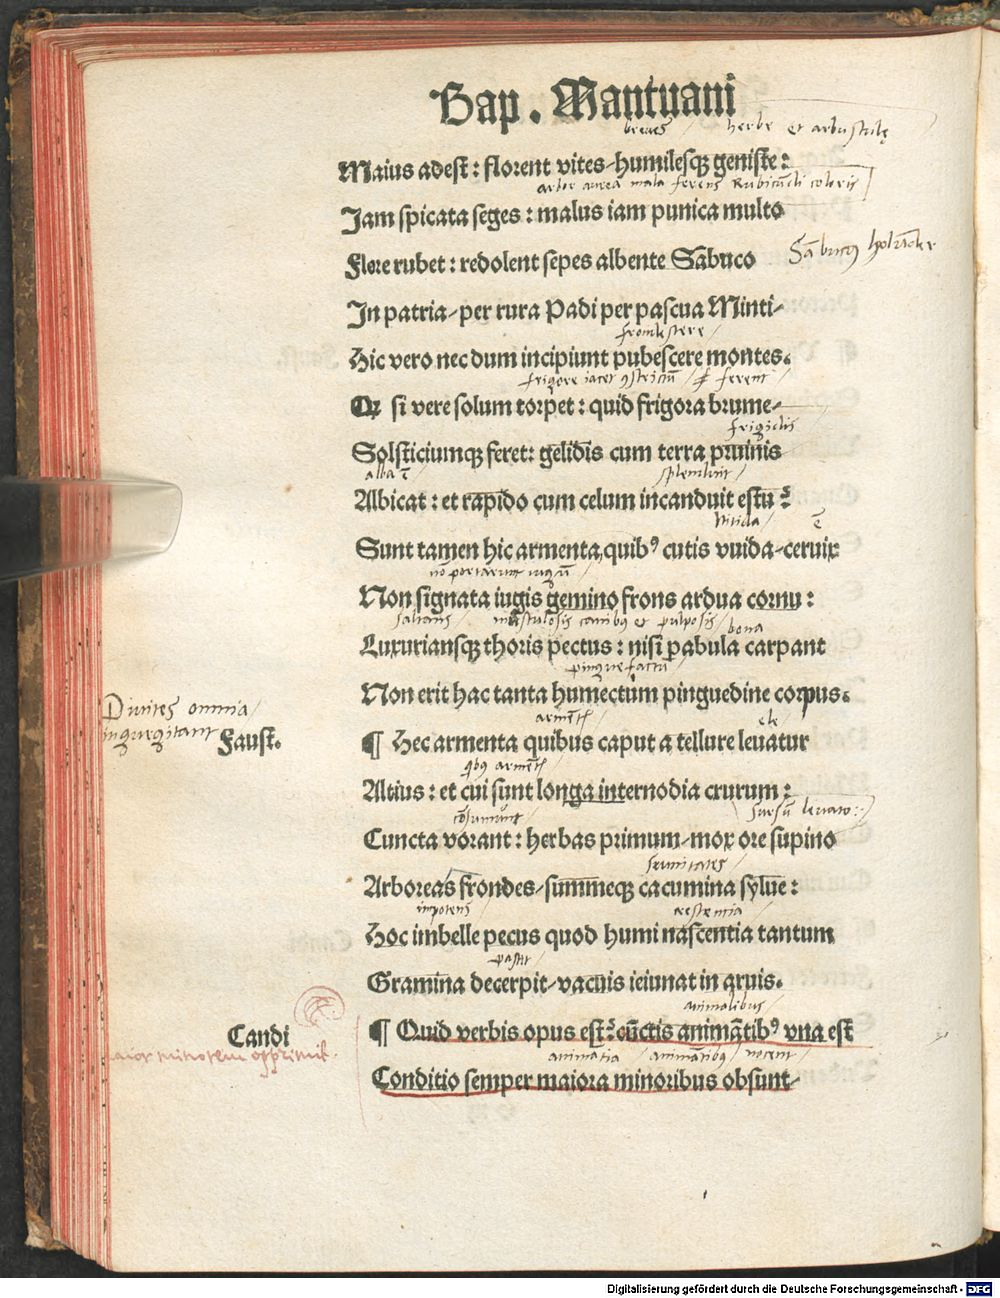 Bap. Mantuani
breues / herbe et arbustulę
Maius adest : florent vites-humilesqꝫ geniste :
arbor aurea mala ferens Rubicũdi coloris
Jam spicata seges : malus iam punica multo
Flore rubet : redolent sepes albente Sãbuco
Sãbucꝰ
In patria-per rura Padi per pascua Minti-
frondescere /
Hic vero nec dum incipiunt pubescere montes.
frigore iacet ferent /
si vere solum torpet : quid frigora brume-
frigidis
Solsticiumqꝫ feret : gelidis cum terra pruinis
alba ē splenduit /
Albicat : et rapido cum celum incanduit estu ?
Nitida / ē
Sunt tamen hic armenta,quibꝰ cutis vuida-ceruix
nõ portarunt iugũ /
Non signata iugis gemino frons ardua cornu :
saltans / musculosis carnibꝰ et pulposis / bona
Luxuriansqꝫ thoris pectus : nisi pabula carpant
pingue factũ /
Non erit hac tanta humectum pinguedine corpus.
Diuites omnia /
ingurgitant Faust.
¶ Hec armenta quibus caput a tellure leuatur
Altius : et cui sunt longa internodia crurum :
cõsumunt / sursũ leuato
Cuncta vorant : herbas primum-mox ore supino
Arboreas frondes-summeqꝫ cacumina sylue :
impotens
Hoc imbelle pecus quod humi nascentia tantum
pascit
Gramina decerpit-vacuis ieiunat in aruis.
animalibus /
Candi
¶ Quid verbis opus est ? cũctis animãtibꝰ vna est
maior minorem opprimit.
animantia / animãtibus / nocent /
Conditio semper majora minoribus obsunt-
Digitalisierung gefördert durch die Deutsche Forschungsgemeinschaft - DFG